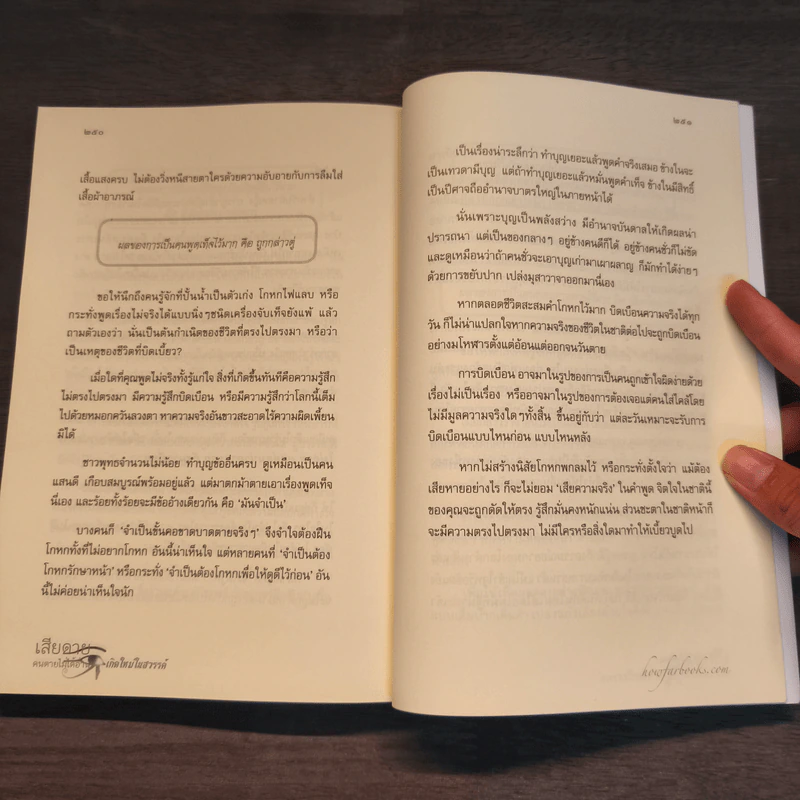 ๒๕๐
เสื้อแสงครบ ไม่ต้องวิ่งหนีสายตาใครด้วยความอับอายกับการลืมใส่
เสื้อผ้าอาภรณ์
ผลของการเป็นคนพูดเท็จไว้มาก คือ ถูกกล่าวตู่
ขอให้นึกถึงคนรู้จักที่ปั้นน้ำเป็นตัวเก่ง โกหกไฟแลบ หรือ
กระทั่งพูดเรื่องไม่จริงได้แบบนิ่งๆชนิดเครื่องจับเท็จยังแพ้ แล้ว
ถามตัวเองว่า นั่นเป็นต้นกำเนิดของชีวิตที่ตรงไปตรงมา หรือว่า
เป็นเหตุของชีวิตที่บิดเบี้ยว?
เมื่อใดที่คุณพูดไม่จริงทั้งรู้แก่ใจ สิ่งที่เกิดขึ้นทันทีคือความรู้สึก
ไม่ตรงไปตรงมา มีความรู้สึกบิดเบือน หรือมีความรู้สึกว่าโลกนี้เต็ม
ไปด้วยหมอกควันลวงตา หาความจริงอันขาวสะอาดไร้ความผิดเพี้ยน
มิได้
ชาวพุทธจำนวนไม่น้อย ทำบุญข้ออื่นครบ ดูเหมือนเป็นคน
แสนดี เกือบสมบูรณ์พร้อมอยู่แล้ว แต่มาตกม้าตายเอาเรื่องพูดเท็จ
นี่เอง และร้อยทั้งร้อยจะมีข้ออ้างเดียวกัน คือ 'มันจำเป็น'
บางคนก็ 'จำเป็นขั้นคอขาดบาดตายจริงๆ' จึงจำใจต้องฝืน
โกหกทั้งที่ไม่อยากโกหก อันนี้น่าเห็นใจ แต่หลายคนที่ 'จำเป็นต้อง
โกหกรักษาหน้า' หรือกระทั่ง 'จำเป็นต้องโกหกเพื่อให้ดูดีไว้ก่อน' อัน
นี้ไม่ค่อยน่าเห็นใจนัก
เสียดาย
คนตายไม่ได้อ่าน เกิดใหม่ในสวรรค์
๒๕๑
เป็นเรื่องน่าระลึกว่า ทำบุญเยอะแล้วพูดคำจริงเสมอ ข้างในจะ
เป็นเทวดามีบุญ แต่ถ้าทำบุญเยอะแล้วหมั่นพูดคำเท็จ ข้างในมีสิทธิ์
เป็นปีศาจถืออำนาจบาตรใหญ่ในภายหน้าได้
นั่นเพราะบุญเป็นพลังสว่าง มีอำนาจบันดาลให้เกิดผลน่า
ปรารถนา แต่เป็นของกลางๆ อยู่ข้างคนดีก็ได้ อยู่ข้างคนชั่วก็ไม่ขัด
และดูเหมือนว่าถ้าคนชั่วจะเอาบุญเก่ามาเผาผลาญ ก็มักทำได้ง่ายๆ
ด้วยการขยับปาก เปล่งมุสาวาจาออกมานี่เอง
หากตลอดชีวิตสะสมคำโกหกไว้มาก บิดเบือนความจริงได้ทุก
วัน ก็ไม่น่าแปลกใจหากความจริงของชีวิตในชาติต่อไปจะถูกบิดเบือน
อย่างมโหฬารตั้งแต่อ้อนแต่ออกจนวันตาย
การบิดเบือน อาจมาในรูปของการเป็นคนถูกเข้าใจผิดง่ายด้วย
เรื่องไม่เป็นเรื่อง หรืออาจมาในรูปของการต้องเจอแต่คนใส่ไคล้โดย
ไม่มีมูลความจริงใดๆทั้งสิ้น ขึ้นอยู่กับว่า แต่ละวันเหมาะจะรับการ
บิดเบือนแบบไหนก่อน แบบไหนหลัง
หากไม่สร้างนิสัยโกหกพกลมไว้ หรือกระทั่งตั้งใจว่า แม้ต้อง
เสียหายอย่างไร ก็จะไม่ยอม 'เสียความจริง' ในคำพูด จิตใจในชาตินี้
ของคุณจะถูกดัดให้ตรง รู้สึกมั่นคงหนักแน่น ส่วนชะตาในชาติหน้าก็
จะมีความตรงไปตรงมา ไม่มีใครหรือสิ่งใดมาทำให้เบี้ยวบูดไป
howfarbooks.com